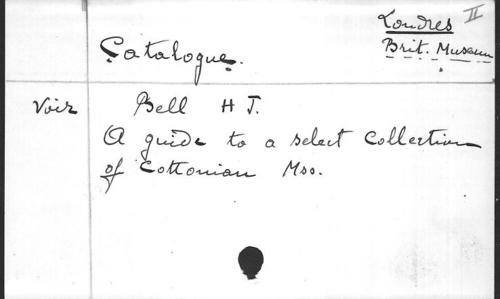 Londres II
Brit. Museum
Catalogue.
Voir Bell H J.
A guide to a select collection
of Cottonian Mss.